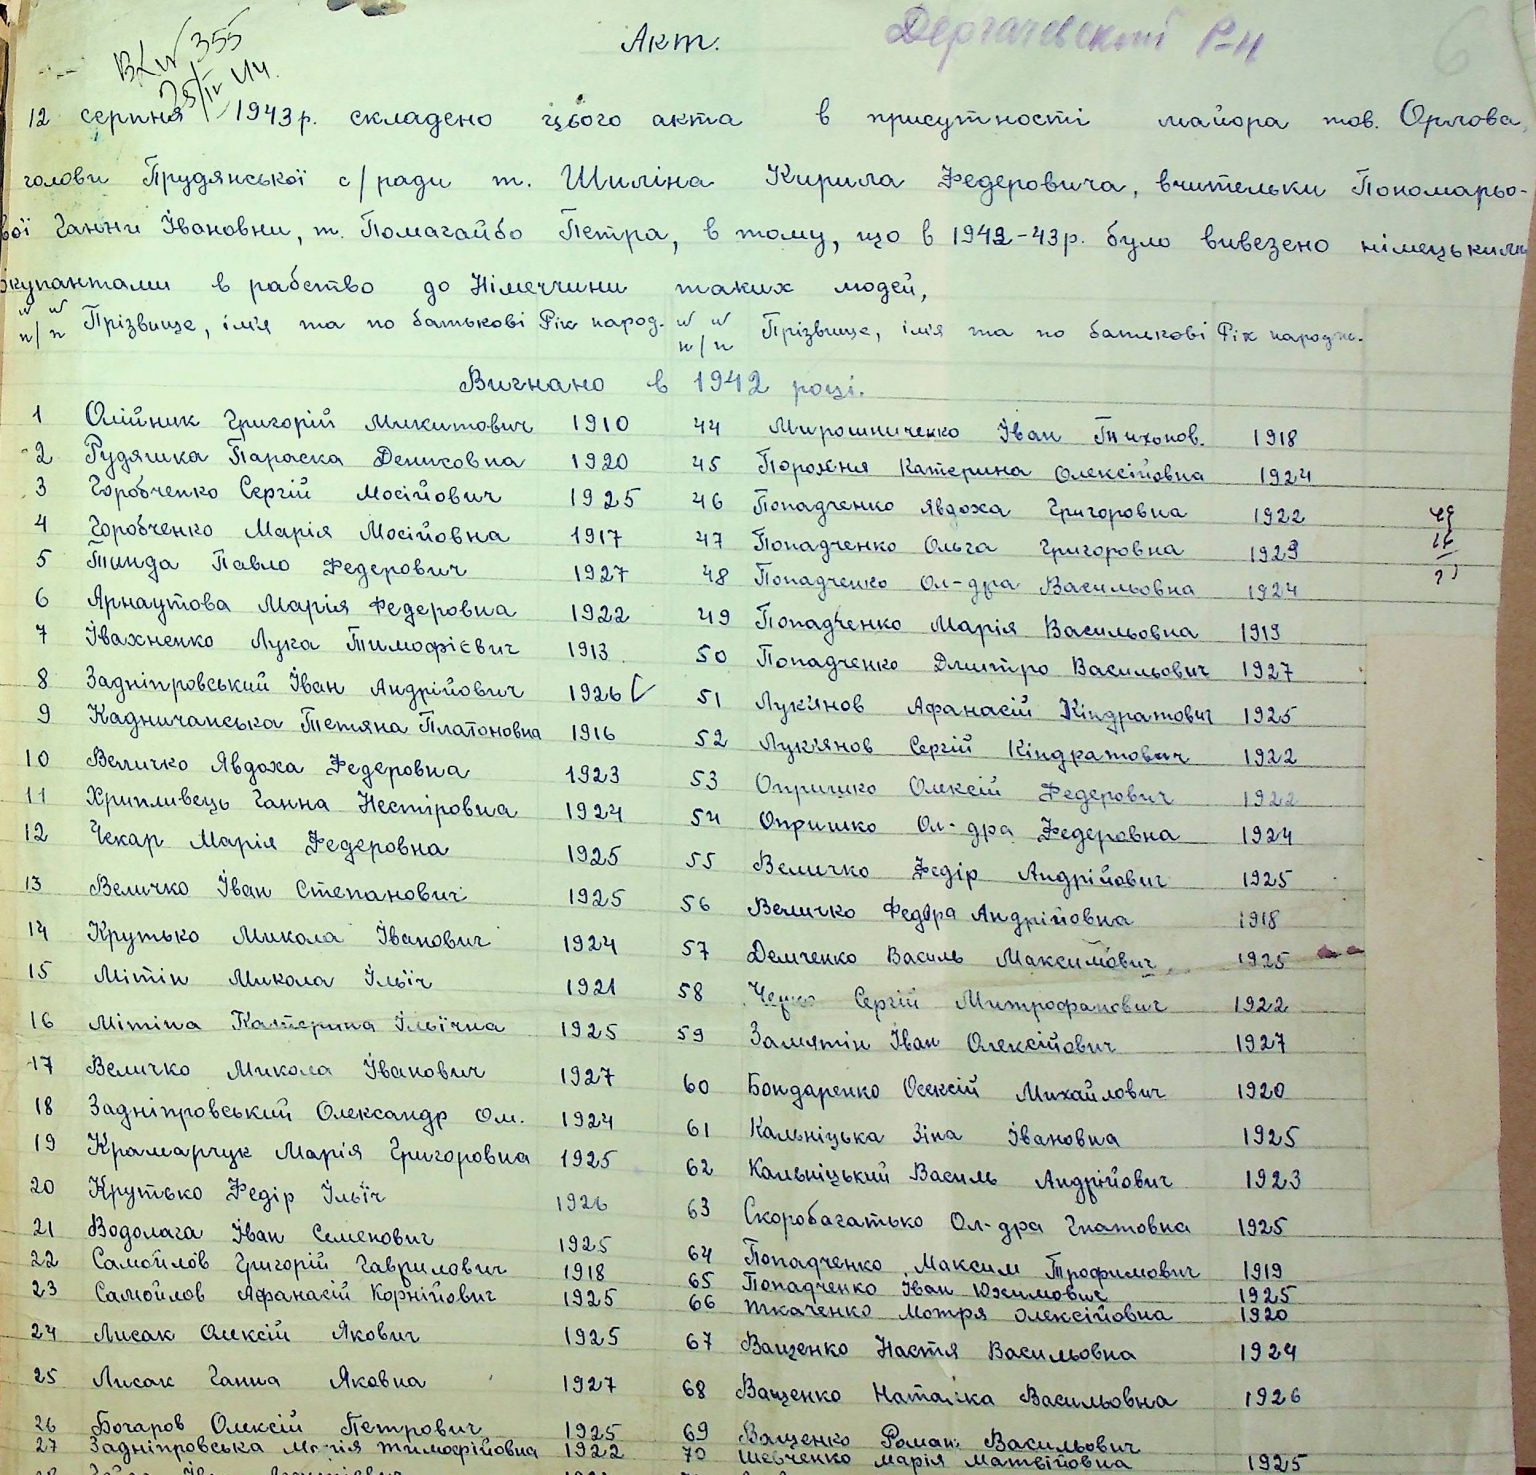 Акт.
Дергачевский Р-н
6
355
12 серпня 1943 р. складено цього акта в присутності майора тов. Орлова,
голови Прудянської с/ради т. Шиліна Кирила Федеровича, вчительки Пономарьо-
вої Ганни Івановни, т. Помагайбо Петра, в тому, що в 1942-43 р. було вивезено німецькими
окупантами в рабство до Німеччини таких людей,
№№ п/п Прізвище, ім'я та по батькові Рік народ. №№ п/п Прізвище, ім'я та по батькові Рік народж.
Вигнано в 1942 році.
1 Олійник Григорій Микитович 1910 44 Мирошниченко Іван Тихонов. 1918
2 Рудяшка Параска Денисовна 1920 45 Порохня Катерина Олексійовна 1924
3 Горобченко Сергій Мосійович 1925 46 Попадченко Явдоха Григоровна 1922
4 Горобченко Марія Мосійовна 1917 47 Попадченко Ольга Григоровна 1929
5 Тинда Павло Федерович 1927 48 Попадченко Ол-дра Васильовна 1924
6 Арнаутова Марія Федеровна 1922 49 Попадченко Марія Васильовна 1919
7 Івахненко Лука Тимофієвич 1913 50 Попадченко Дмитро Васильович 1927
8 Задніпровський Іван Андрійович 1926 51 Лук'янов Афанасій Кіндратович 1925
9 Кадничанська Тетяна Платоновна 1916 52 Лук'янов Сергій Кіндратович 1922
10 Величко Явдоха Федеровна 1923 53 Опришко Олексій Федерович 1922
11 Хрипливець Ганна Нестіровна 1924 54 Опришко Ол-дра Федеровна 1924
12 Чекар Марія Федеровна 1925 55 Величко Федір Андрійович 1925
13 Величко Іван Степанович 1925 56 Величко Федора Андрійовна 1918
14 Крутько Микола Іванович 1924 57 Демченко Василь Максимович 1925
15 Мітін Микола Ільїч 1921 58 Сергій Митрофанович 1922
16 Мітіна Катерина Ільїчна 1925 59 Замятін Іван Олексійович 1927
17 Величко Микола Іванович 1927 60 Бондаренко Олексій Михайлович 1920
18 Задніпровський Олександр Ом. 1924 61 Кальніцька Зіна Івановна 1925
19 Крамарчук Марія Григоровна 1925 62 Кальніцький Василь Андрійович 1923
20 Крутько Федір Ільїч 1926 63 Скоробагатько Ол-дра Гнатовна 1925
21 Водолага Іван Семенович 1925 64 Попадченко Максим Трофимович 1919
22 Самойлов Григорій Гаврилович 1918 65 Попадченко Іван Юхимович 1925
23 Самойлов Афанасій Корнійович 1925 66 Ткаченко Мотря Олексійовна 1920
24 Лисак Олексій Якович 1925 67 Ващенко Настя Васильовна 1924
25 Лисак Ганна Яковна 1927 68 Ващенко Наталка Васильовна 1926
26 Бочаров Олексій Петрович 1925 69 Ващенко Роман Васильович
27 Задніпровська Марія Тимофійовна 1922 70 Шевченко Марія Матвійовна 1925